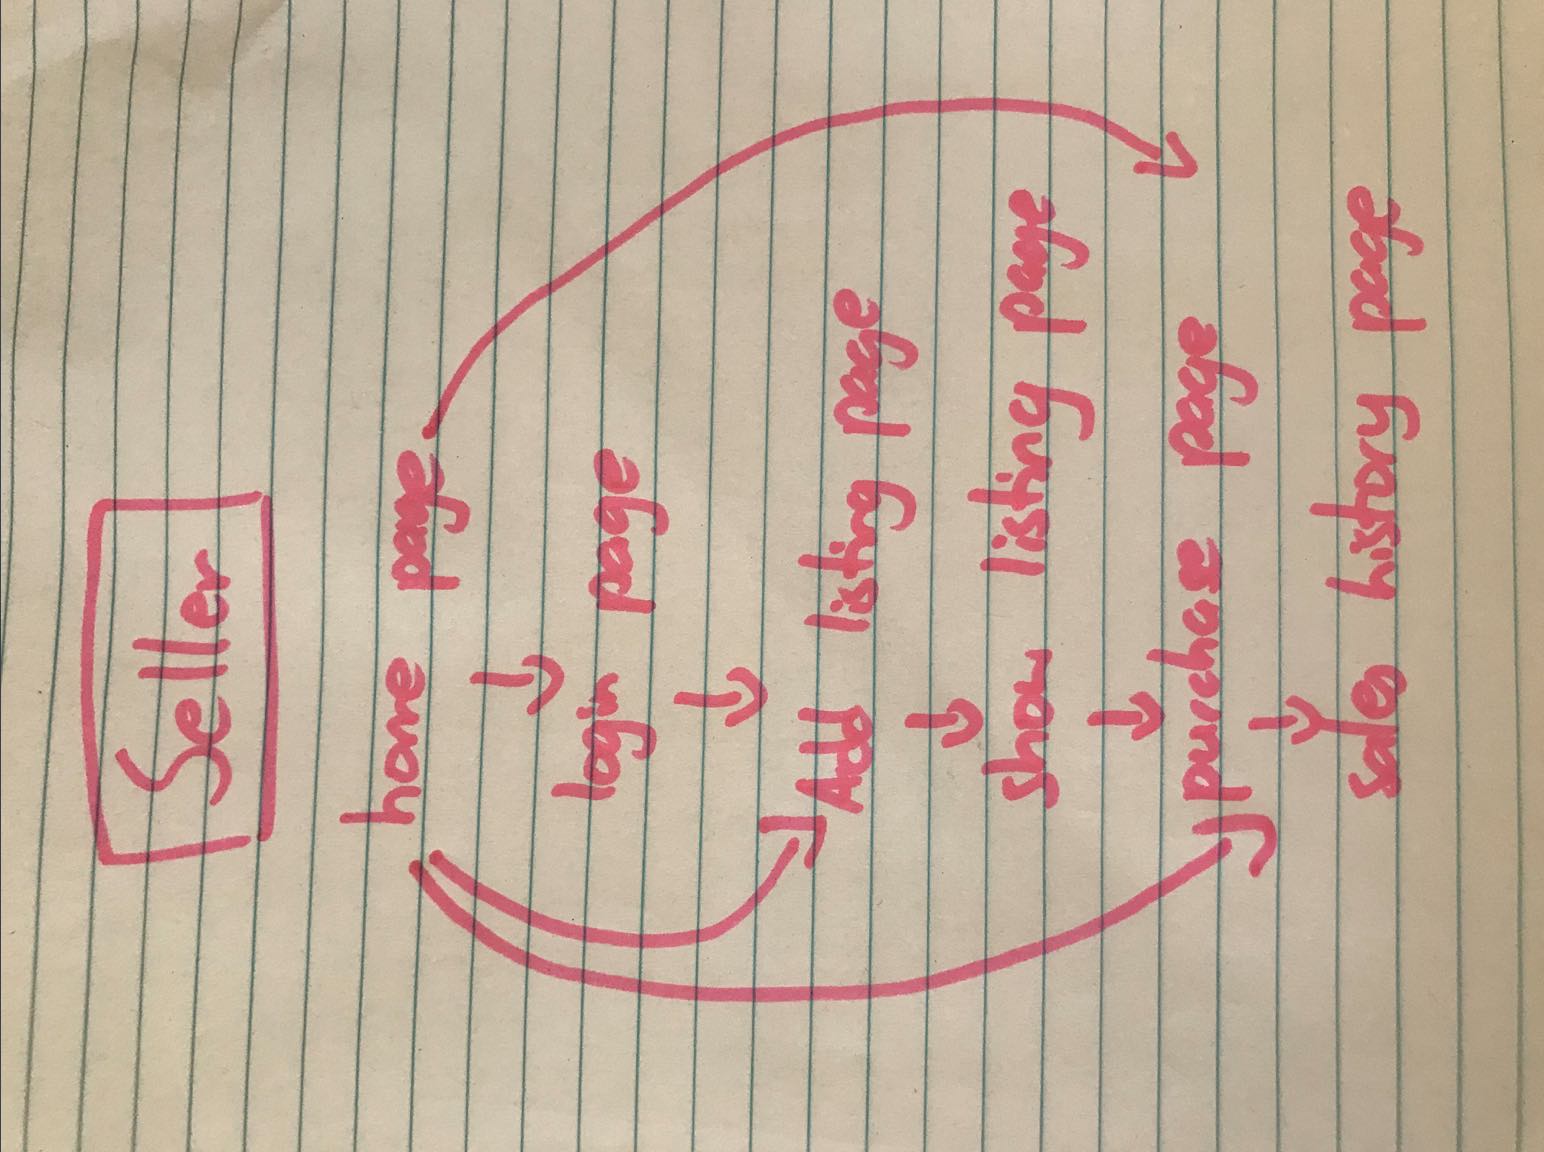 Seller
home page
login page
Add listing page
show listing page
purchase page
sales history page